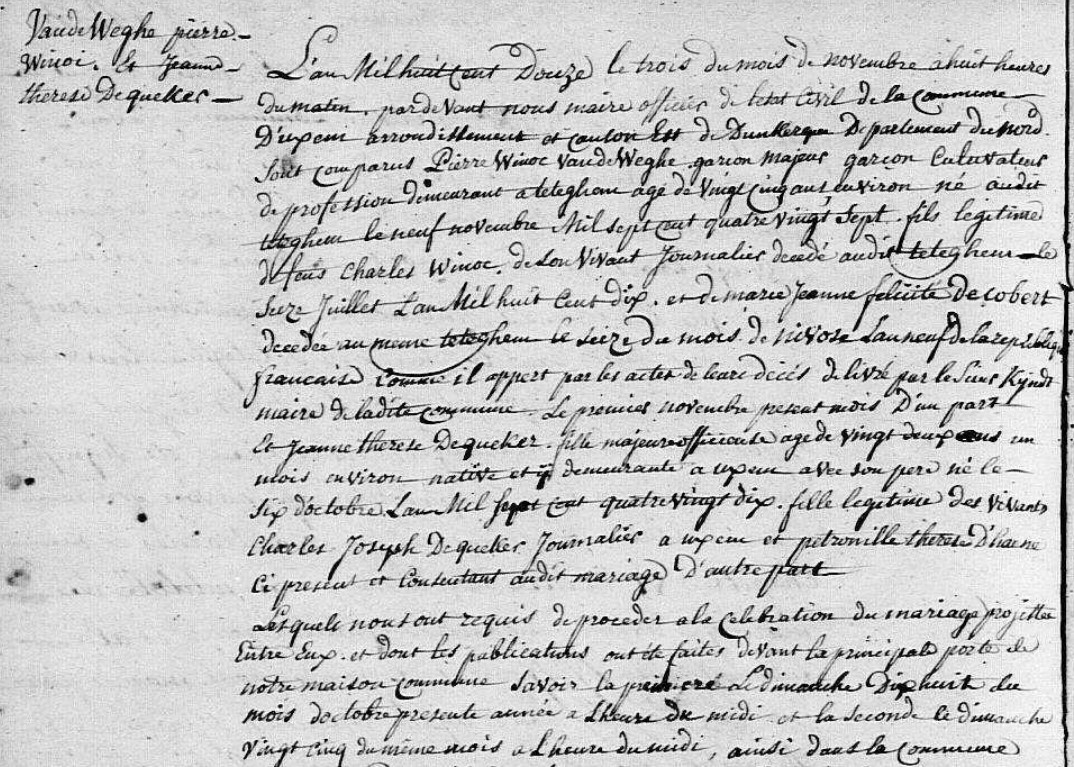 VandeWeghe pierre
Winoc. Et Jeanne
therese Dequeker
L'an Mil huit Cent Douze le trois du mois de novembre a huit heures
du matin. pardevant nous maire officier de letat Civil de la Commune
D'uxem arrondissement et canton Est de Dunkerque Departement du nord.
Sont comparus Pierre Winoc VandeWeghe garçon majeur garçon Cultivateur
de profession demeurant a teteghem age de vingt cinq ans environ né audit
teteghem le neuf novembre Mil sept cent quatre vingt sept. fils legitime
de feus Charles Winoc. de son Vivant Journalier decedé audit teteghem le
seize Juillet L'an Mil huit Cent dix. et de marie Jeanne felicité Decobert
decedée au meme teteghem le seize du mois de nivose L'an neuf de la republique
francaise Comme il appert par les actes de leurs decés delivré par le Sieur Kyndt
maire de ladite commune. Le premier novembre present mois D'un part
Et Jeanne therese Dequeker. fille majeure age de vingt deux ans un
mois environ native et y demeurante a uxem avec son pere né le
six d'octobre L'an Mil sept cent quatre vingt dix. fille legitime des vivants
Charles Joseph Dequeker Journalier a uxem et petronille therese D'haene
Ci present et Consentant audit mariage D'autre part
Lesquels nous ont requis de proceder a la Celebration du mariage projettée
Entre Eux. et dont les publications ont été faites devant la principale porte de
notre maison commune savoir la premiere Le dimanche Dixhuit du
mois d'octobre presente année a L'heure du midi et la seconde le dimanche
Vingt cinq du même mois a L'heure du midi, ainsi dans la Commune